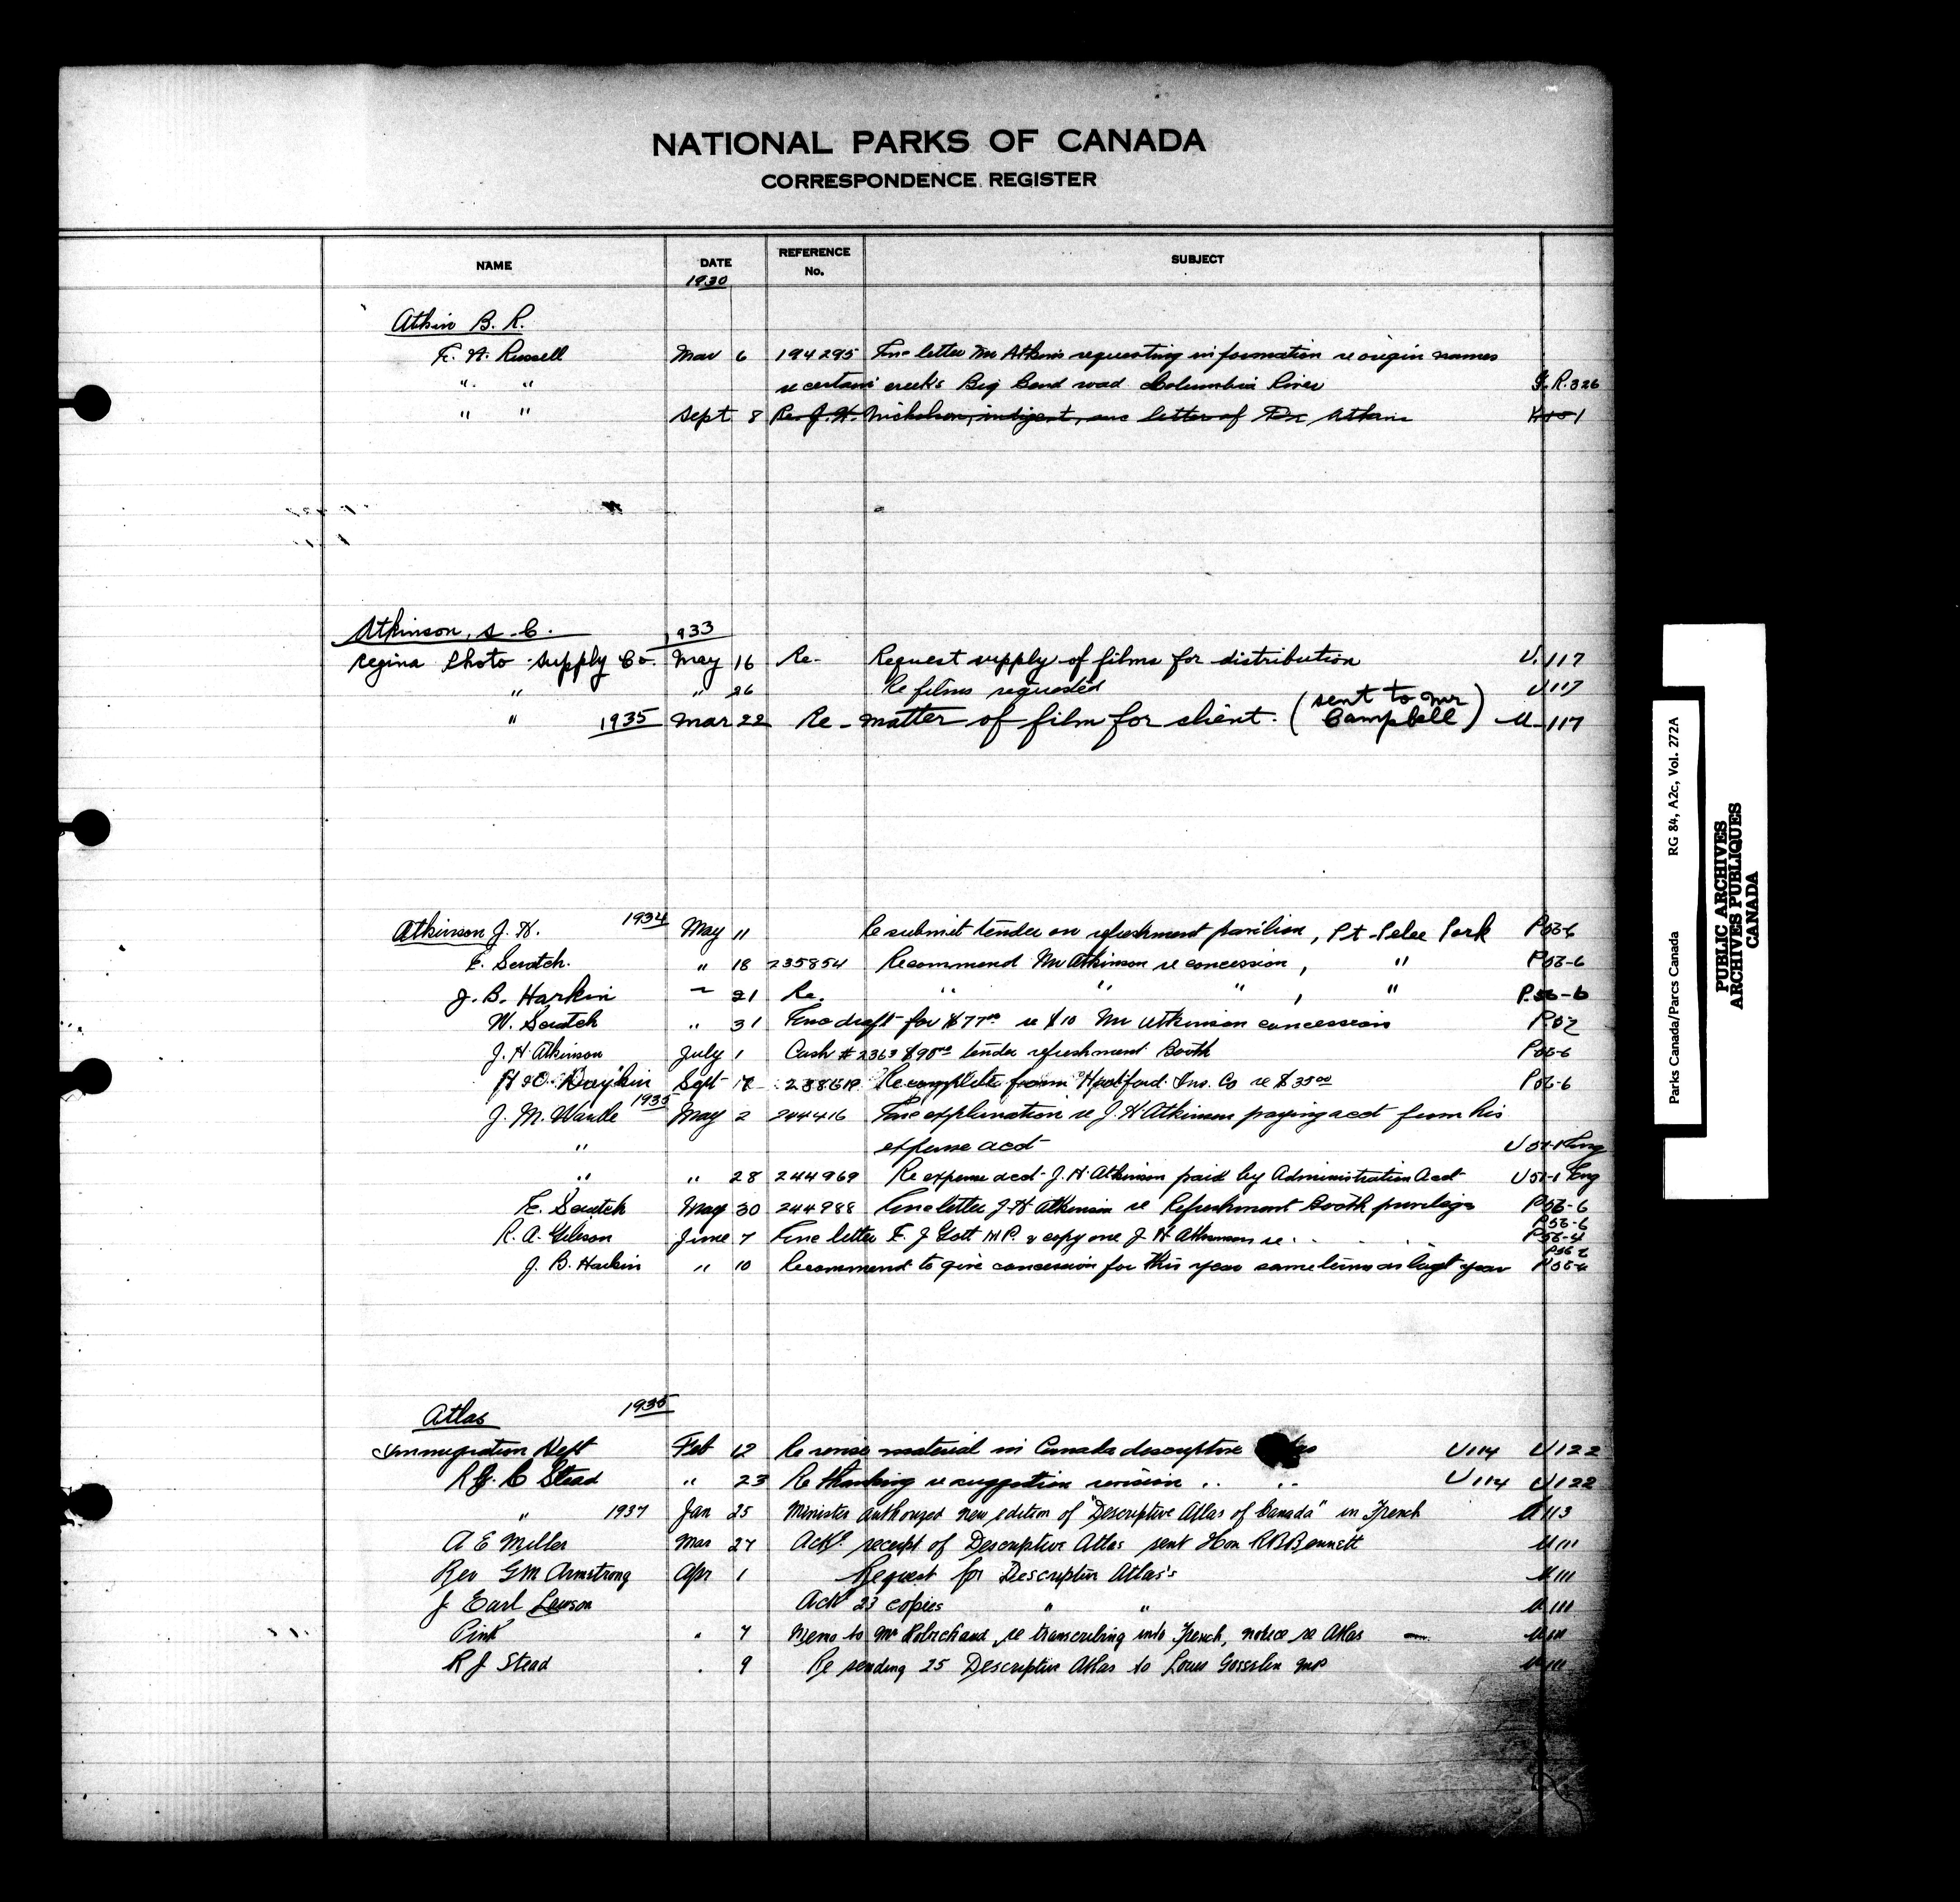 NATIONAL PARKS OF CANADA
CORRESPONDENCE REGISTER
NAME DATE REFERENCE No. SUBJECT
1930
Atkin B. R.
Mar 6 194295 Enc letter Mr Atkins requesting information re origin names
" " re certain creeks Big Bend road Columbia River G.R.326
" " Sept 8 Re. J. H. Nicholson, indigent, enc letter of Atkins
Atkinson, 1933
Regina Photo Supply Co. May 16 Re- Request supply of films for distribution U.117
" " 26 Re films requested U117
" 1935 Mar 22 Re- matter of film for client. (sent to Mr Campbell) U-117
Atkinson J. H. 1934 May 11 Re submit tender on refreshment pavilion, Pt. Pelee Park P56-6
E. Scratch. " 18 235854 Recommend Mr Atkinson re concession, " P56-6
J. B. Harkin " 21 Re. " " " , " P.56-6
W. Scratch " 31 Enc draft for $77.00 re $10 Mr Atkinson concession
J. H. Atkinson July 1 Cash # 2363 $90.00 tender refreshment Booth P56-6
Daykin Sept Re Hartford Ins. Co re $35.00 P56-6
J. M. Wardle 1935 May 2 244416 Enc explanation re J. H. Atkinson paying acct from his
" expense acct U51-1 Eng
" " 28 244969 Re expense acct J. H. Atkinson paid by Administration Acct U51-1 Eng
E. Scratch May 30 244988 Enc letter J. H. Atkinson re Refreshment Booth privilege P56-6
P56-6
R. A. Gibson June 7 Enc letter E. J. Gott M.P. & copy one J. H. Atkinson re. . . . P56-4
J. B. Harkin " 10 Recommend to give concession for this year same terms as last year
Atlas 1935
Immigration Dept Feb 12 Re revise material in Canada descriptive U114 U122
Stead " 23 Re thanking re suggestion revision " " U114 U122
" 1937 Jan 25 Minister authorized new edition of "Descriptive Atlas of Canada" in French U113
A E Miller Mar 27 Ack'g receipt of Descriptive Atlas sent Hon R B Bennett U111
Rev G M Armstrong Apr 1 Request for Descriptive Atlas's U111
J. Earl Lawson Ack'g 23 copies " " U111
Pink " 7 Memo to Mr Robichaud, re transcribing into French, notice re Atlas U111
R J Stead " 9 Re sending 25 Descriptive Atlas to Louis Gosselin U111
Parks Canada/Parcs Canada RG 84, A2c, Vol. 272A
PUBLIC ARCHIVES
ARCHIVES PUBLIQUES
CANADA